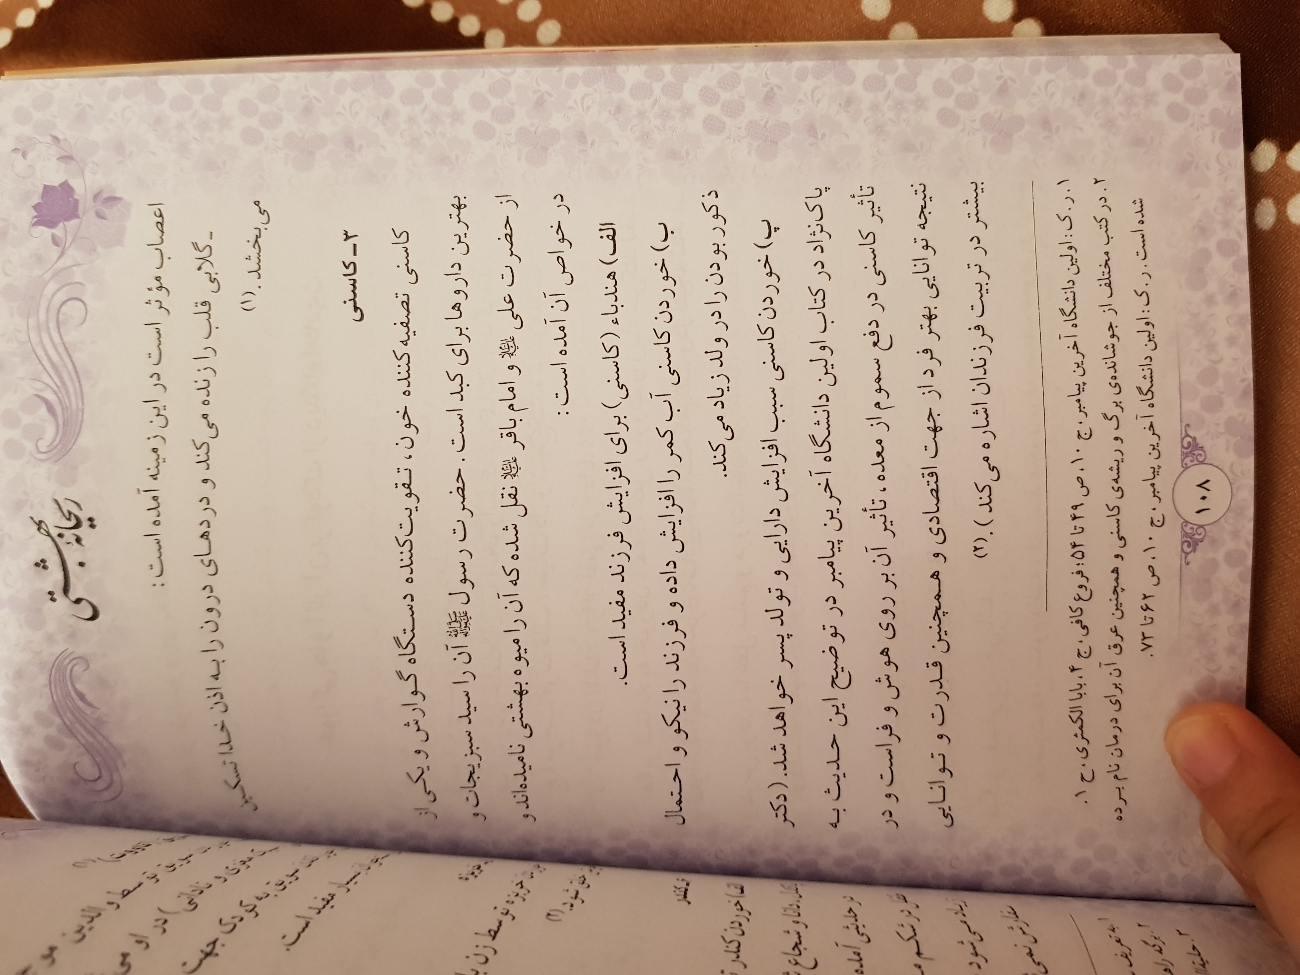 ریحانه بهشتی
اعصاب مؤثر است در این زمینه آمده است:
ـ گلابی قلب را زنده می‌کند و دردهای درون را به اذن خدا تسکین
می‌بخشد.(۱)
۳ ـ کاسنی
کاسنی تصفیه کننده خون، تقویت‌کننده دستگاه گوارش و یکی از
بهترین داروها برای کبد است. حضرت رسول ﷺ آن را سید سبزیجات و
از حضرت علی علیه السلام و امام باقر علیه السلام نقل شده که آن را میوه بهشتی نامیده‌اند و
در خواص آن آمده است:
الف) هندباء (کاسنی) برای افزایش فرزند مفید است.
ب) خوردن کاسنی آب کمر را افزایش داده و فرزند را نیکو و احتمال
ذکور بودن را در ولد زیاد می‌کند.
پ) خوردن کاسنی سبب افزایش دارایی و تولد پسر خواهد شد. (دکتر
پاک‌نژاد در کتاب اولین دانشگاه آخرین پیامبر در توضیح این حدیث به
تأثیر کاسنی در دفع سموم از معده، تأثیر آن بر روی هوش و فراست و در
نتیجه توانایی بهتر فرد از جهت اقتصادی و همچنین قدرت و توانایی
بیشتر در تربیت فرزندان اشاره می‌کند).(۲)
۱. ر.ک: اولین دانشگاه آخرین پیامبر، ج ۱۰، ص ۴۹ تا ۵۴؛ فروع کافی، ج ۴، بابا الکمثری، ح ۱.
۲. در کتب مختلف از جوشانده‌ی برگ و ریشه‌ی کاسنی و همچنین عرق آن برای درمان نام برده
شده است. ر.ک: اولین دانشگاه آخرین پیامبر، ج ۱۰، ص ۶۲ تا ۷۳.
۱۰۸